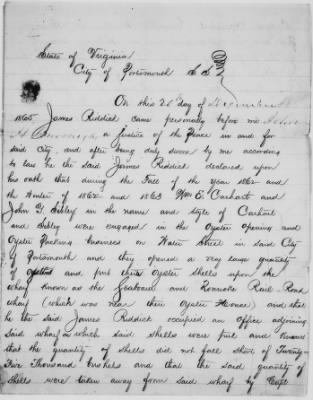 State of Virginia
City of Portsmouth S.S.
On this 26th day of December
1865 James Riddick came personally before me
a Justice of the Peace in and for
said City, and after being duly sworn by me according
to law he the said James Riddick declared upon
his oath that during the Fall of the Year 1862 and
the Winter of 1862 and 1863 Wm E. Carhart and
John G. Sibley in the name and style of Carhart
and Sibley were engaged in the Oyster Opening and
Oyster Packing business on Water Street in said City
of Portsmouth and they opened a very large quantity
of and put their Oyster Shells upon the
wharf known as the Seaboard and Roanoke Rail Road
wharf (which was near their Oyster House) and that
he the said James Riddick occupied an office adjoining
said wharf on which said shells were put and knows
that the quantity of shells did not fall short of Twenty-
Five Thousand bushels and that the said quantity of
shells were taken away from said wharf by Capt